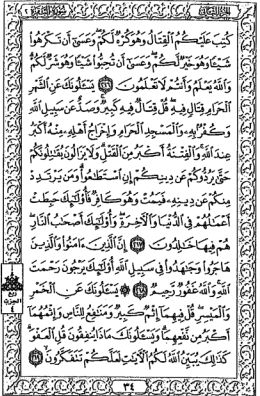 سُورَةُ البَقَرَةِ ٢ الجُزْءُ الثَّانِي
كُتِبَ عَلَيْكُمُ ٱلْقِتَالُ وَهُوَ كُرْهٌ لَّكُمْ وَعَسَىٰٓ أَن تَكْرَهُوا۟
شَيْـًٔا وَهُوَ خَيْرٌ لَّكُمْ وَعَسَىٰٓ أَن تُحِبُّوا۟ شَيْـًٔا وَهُوَ شَرٌّ لَّكُمْ
وَٱللَّهُ يَعْلَمُ وَأَنتُمْ لَا تَعْلَمُونَ ٢١٦ يَسْـَٔلُونَكَ عَنِ ٱلشَّهْرِ
ٱلْحَرَامِ قِتَالٍ فِيهِ قُلْ قِتَالٌ فِيهِ كَبِيرٌ وَصَدٌّ عَن سَبِيلِ ٱللَّهِ
وَكُفْرٌۢ بِهِۦ وَٱلْمَسْجِدِ ٱلْحَرَامِ وَإِخْرَاجُ أَهْلِهِۦ مِنْهُ أَكْبَرُ
عِندَ ٱللَّهِ وَٱلْفِتْنَةُ أَكْبَرُ مِنَ ٱلْقَتْلِ وَلَا يَزَالُونَ يُقَـٰتِلُونَكُمْ
حَتَّىٰ يَرُدُّوكُمْ عَن دِينِكُمْ إِنِ ٱسْتَطَـٰعُوا۟ وَمَن يَرْتَدِدْ
مِنكُمْ عَن دِينِهِۦ فَيَمُتْ وَهُوَ كَافِرٌ فَأُو۟لَـٰٓئِكَ حَبِطَتْ
أَعْمَـٰلُهُمْ فِى ٱلدُّنْيَا وَٱلْـَٔاخِرَةِ وَأُو۟لَـٰٓئِكَ أَصْحَـٰبُ ٱلنَّارِ
هُمْ فِيهَا خَـٰلِدُونَ ٢١٧ إِنَّ ٱلَّذِينَ ءَامَنُوا۟ وَٱلَّذِينَ
هَاجَرُوا۟ وَجَـٰهَدُوا۟ فِى سَبِيلِ ٱللَّهِ أُو۟لَـٰٓئِكَ يَرْجُونَ رَحْمَتَ
ٱللَّهِ وَٱللَّهُ غَفُورٌ رَّحِيمٌ ٢١٨ يَسْـَٔلُونَكَ عَنِ ٱلْخَمْرِ
وَٱلْمَيْسِرِ قُلْ فِيهِمَآ إِثْمٌ كَبِيرٌ وَمَنَـٰفِعُ لِلنَّاسِ وَإِثْمُهُمَآ
أَكْبَرُ مِن نَّفْعِهِمَا وَيَسْـَٔلُونَكَ مَاذَا يُنفِقُونَ قُلِ ٱلْعَفْوَ
كَذَٰلِكَ يُبَيِّنُ ٱللَّهُ لَكُمُ ٱلْـَٔايَـٰتِ لَعَلَّكُمْ تَتَفَكَّرُونَ ٢١٩
ربع
الحزب
٤
٣٤